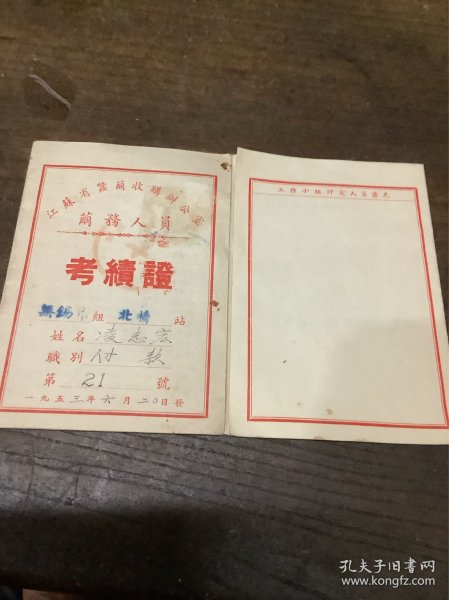 江蘇省蠶繭收購辦公室
繭務人員
考績證
無錫 組 北橋 站
姓名 凌志宏
職別 付款
第 21 號
一九五三年六月二0日發
工作小組評定人員意見
孔夫子旧书网
www.kongfz.com